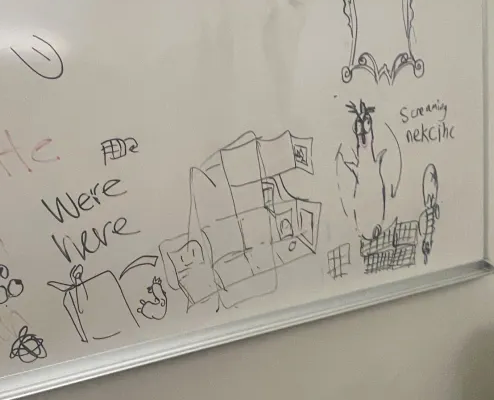 He
We're
here
Screaming
nekcihc